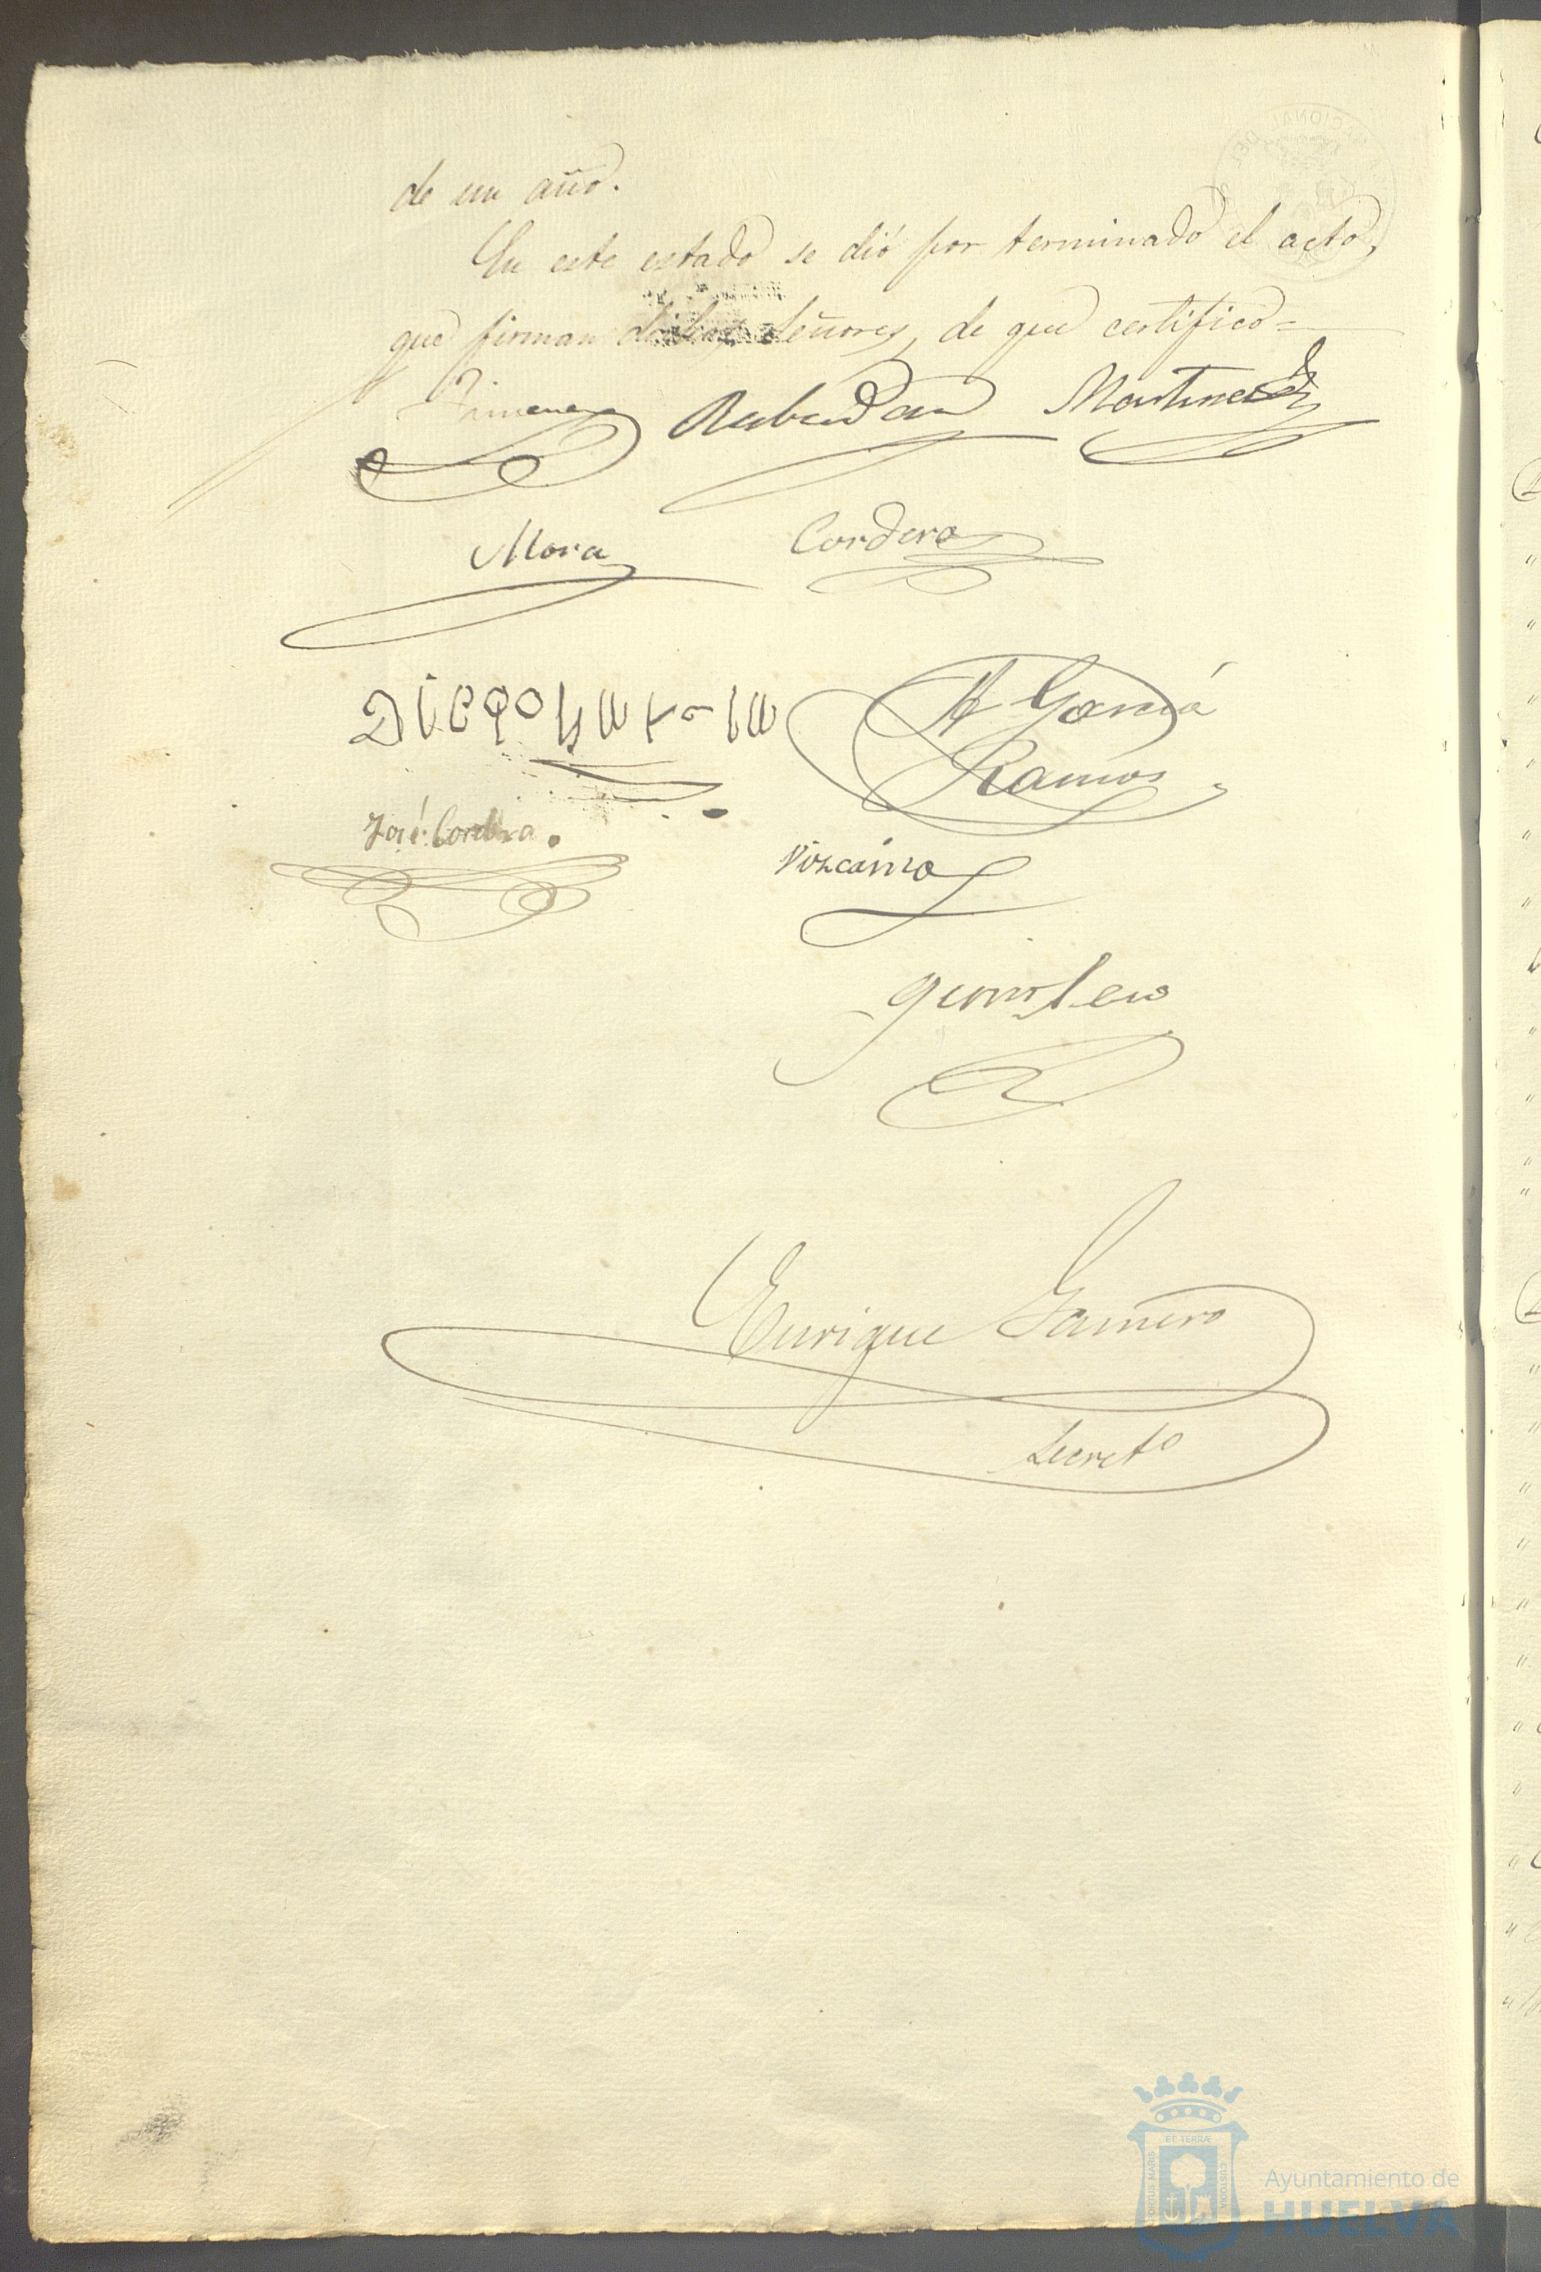 de un año.
En este estado se dió por terminado el acto,
que firman dichos Señores, de que certifico=
Jimenez Rabadan Martinez
Mora Cordero
Diego
A García
Ramos
José Cordero.
Vizcaino
Quintero
Enrique Gamero
Secretº
ET TERRÆ
PORTUS MARIS
CUSTODIA
Ayuntamiento de
HUELVA